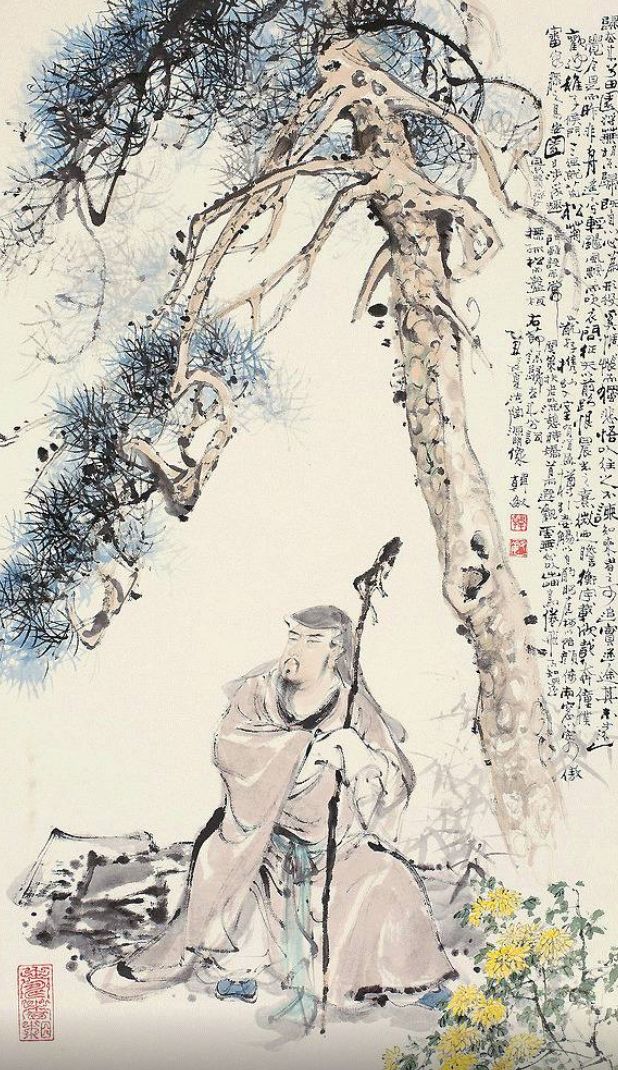 歸去來兮田園將蕪胡不歸既自以心為形役奚惆悵而獨悲悟以往之不諫知來者之可追實迷途其未遠
覺今是而昨非舟遙遙以輕颺風飄飄而吹衣問征夫以前路恨晨光之熹微乃瞻衡宇載欣載奔僮僕
歡迎稚子候門三徑就荒松菊猶存攜幼入室有酒盈樽引壺觴以自酌眄庭柯以怡顏倚南窗以寄傲
審容膝之易安園日涉以成趣門雖設而常關策扶老以流憩時矯首而遐觀雲無心以出岫鳥倦飛而知還
景翳翳以將入撫孤松而盤桓 右節錄歸去來兮辭
乙丑 陶淵明像 韓敏